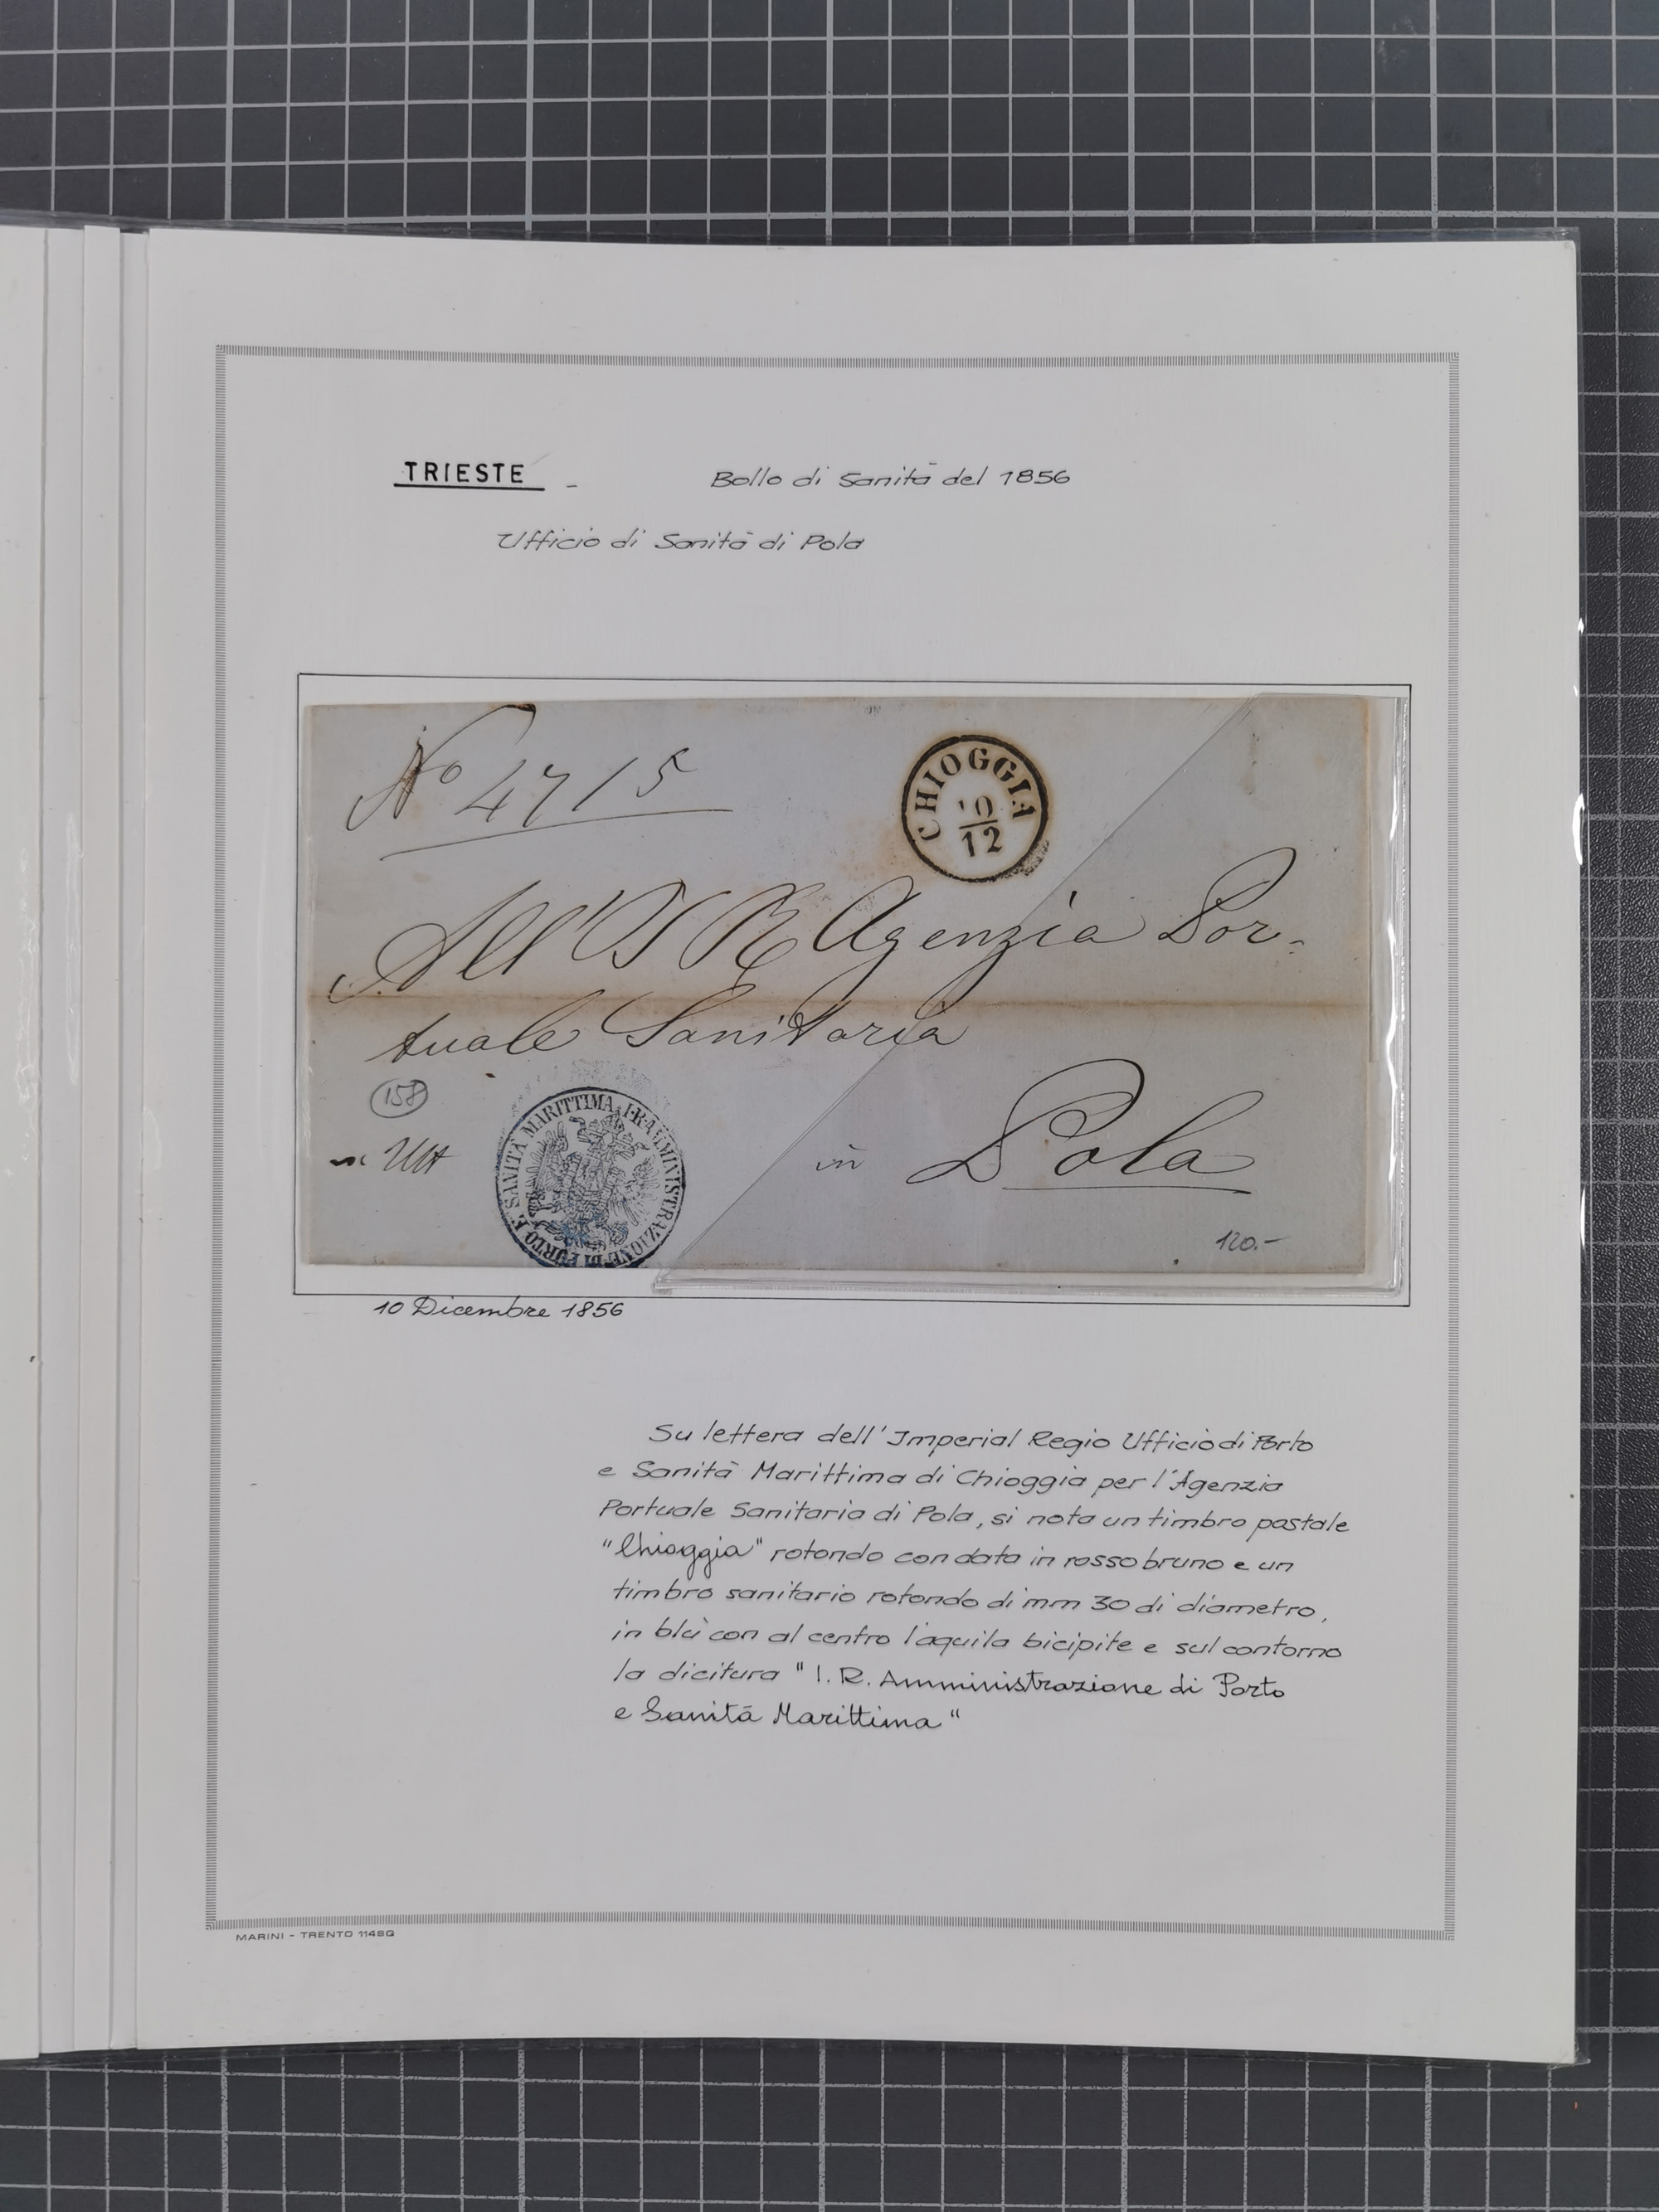 TRIESTE - Bollo di Sanità del 1856
Ufficio di Sanità di Pola
No 4715
CHIOGGIA
10/12
All' I R Agenzia Por-
tuale Sanitaria
158
E SANITÀ MARITTIMA I.R. AMMINISTRAZIONE DI PORTO
in Pola
120.-
10 Dicembre 1856
Su lettera dell' Imperial Regio Ufficio di Porto
e Sanità Marittima di Chioggia per l'Agenzia
Portuale Sanitaria di Pola, si nota un timbro postale
"Chioggia" rotondo con data in rosso bruno e un
timbro sanitario rotondo di mm 30 di diametro,
in blù con al centro l'aquila bicipite e sul contorno
la dicitura "I.R. Amministrazione di Porto
e Sanità Marittima"
MARINI - TRENTO 114SG